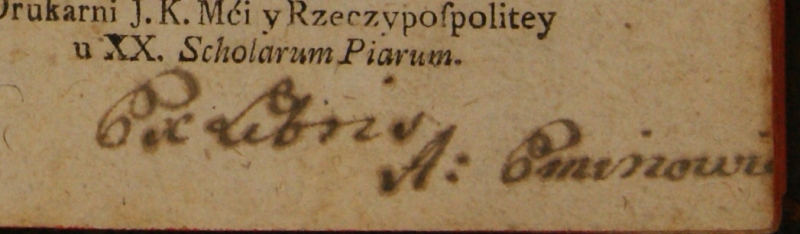 Drukarni J. K. Mći y Rzeczypoſpolitey
u XX. Scholarum Piarum.
Ex Libris
A: Eminowi